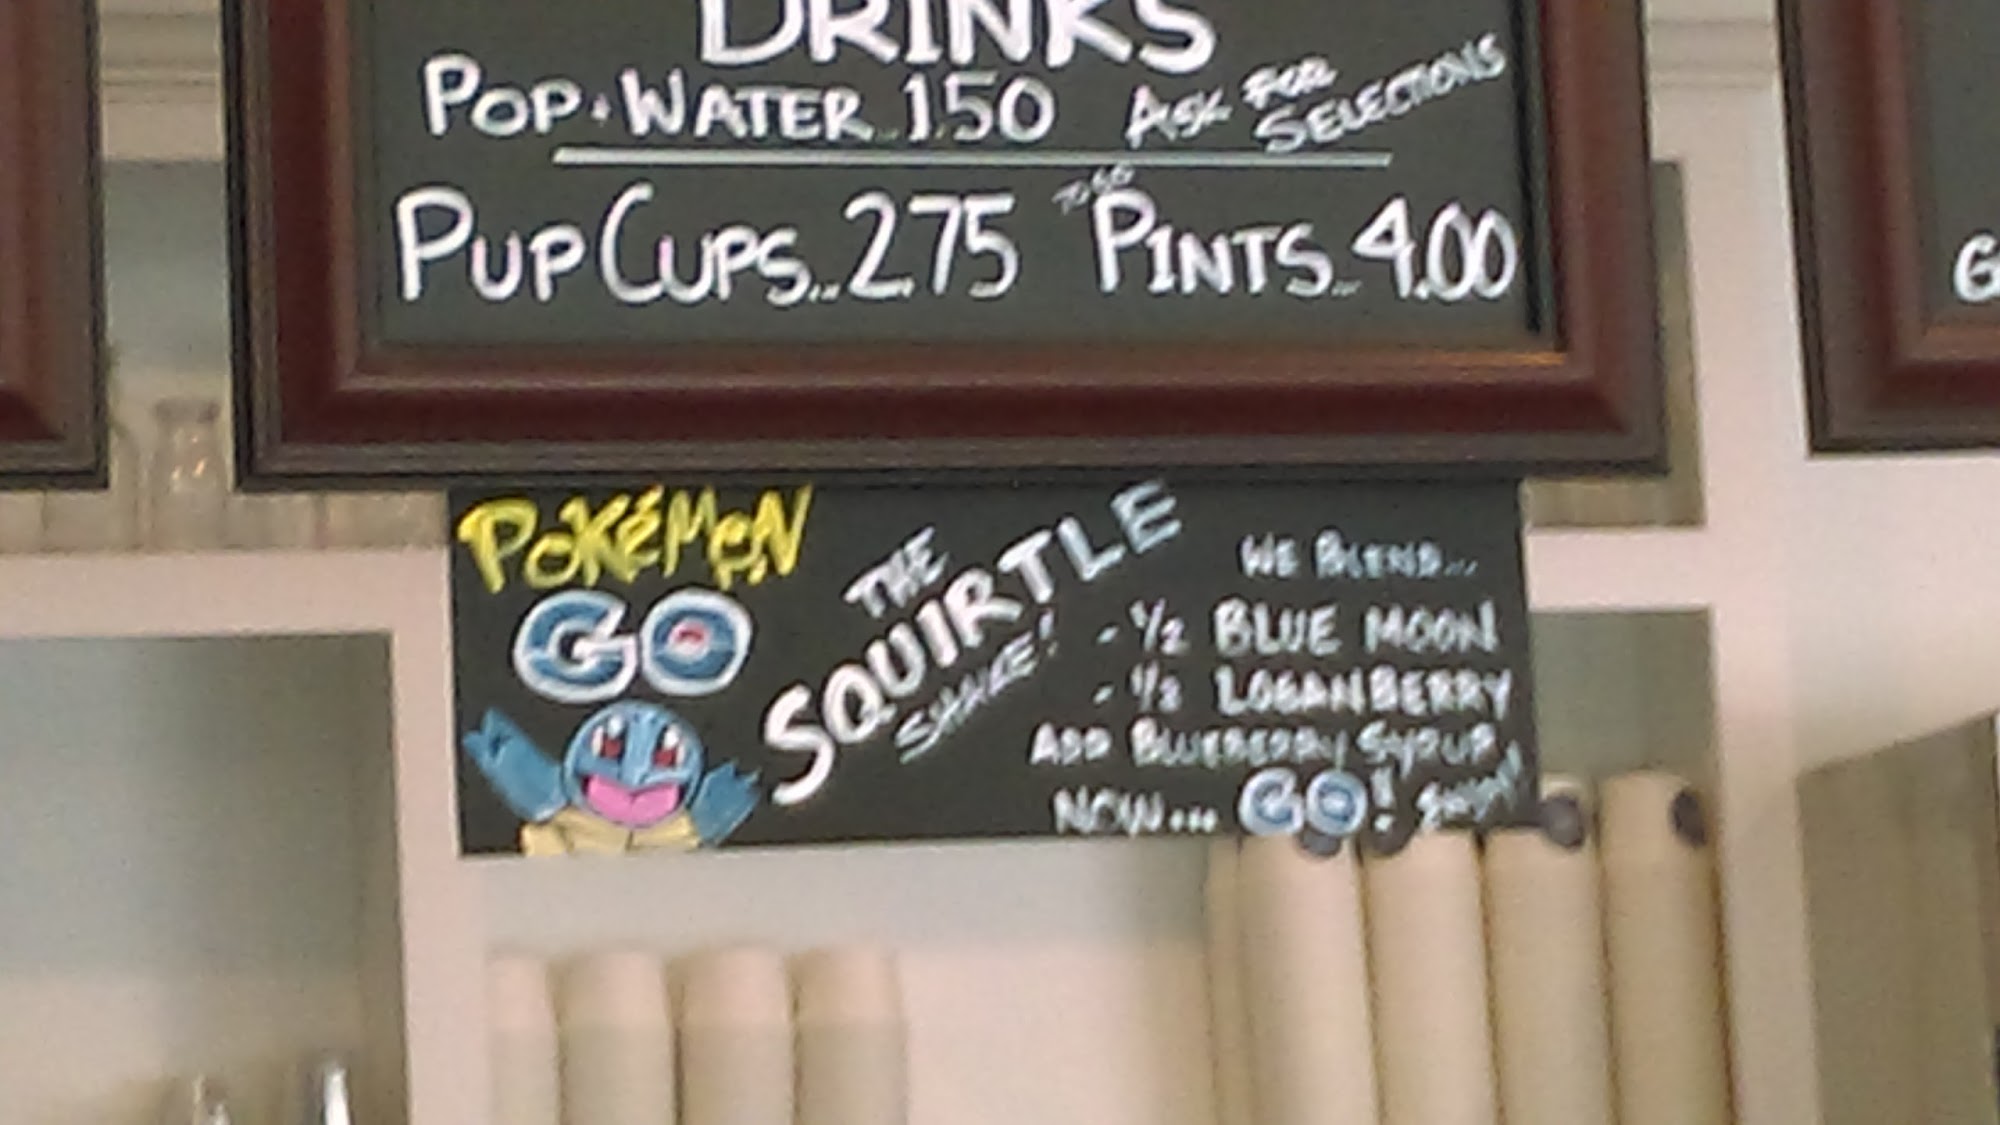 DRINKS
POP · WATER...1.50 ASK FOR SELECTIONS
PUP CUPS...2.75 TO GO PINTS...4.00
G
POKÉMON
GO
THE
SQUIRTLE
SHAKE!
WE BLEND...
- 1/2 BLUE MOON
- 1/2 LOGANBERRY
ADD BLUEBERRY SYRUP
NOW... GO!